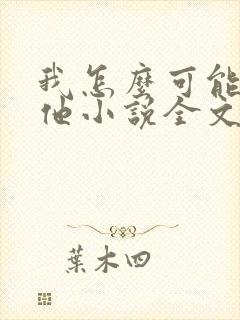 我怎麼可能
他小說全文
葉木四